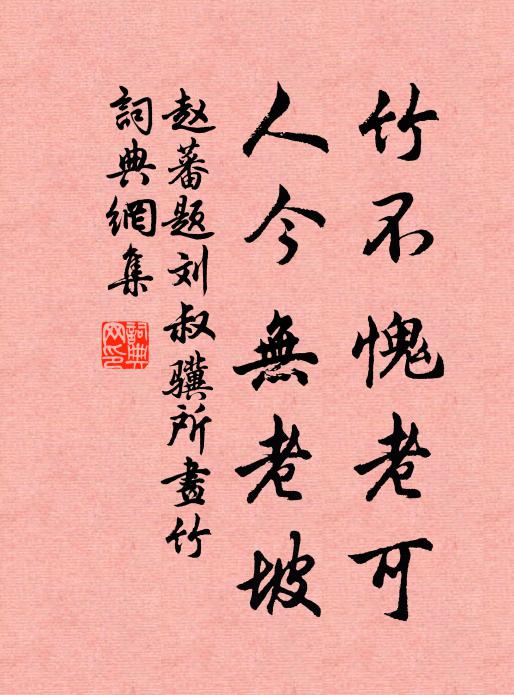 竹不愧老可
人今無老坡
赵蕃题刘叔骥所畫竹
詞典網集
詞典网印